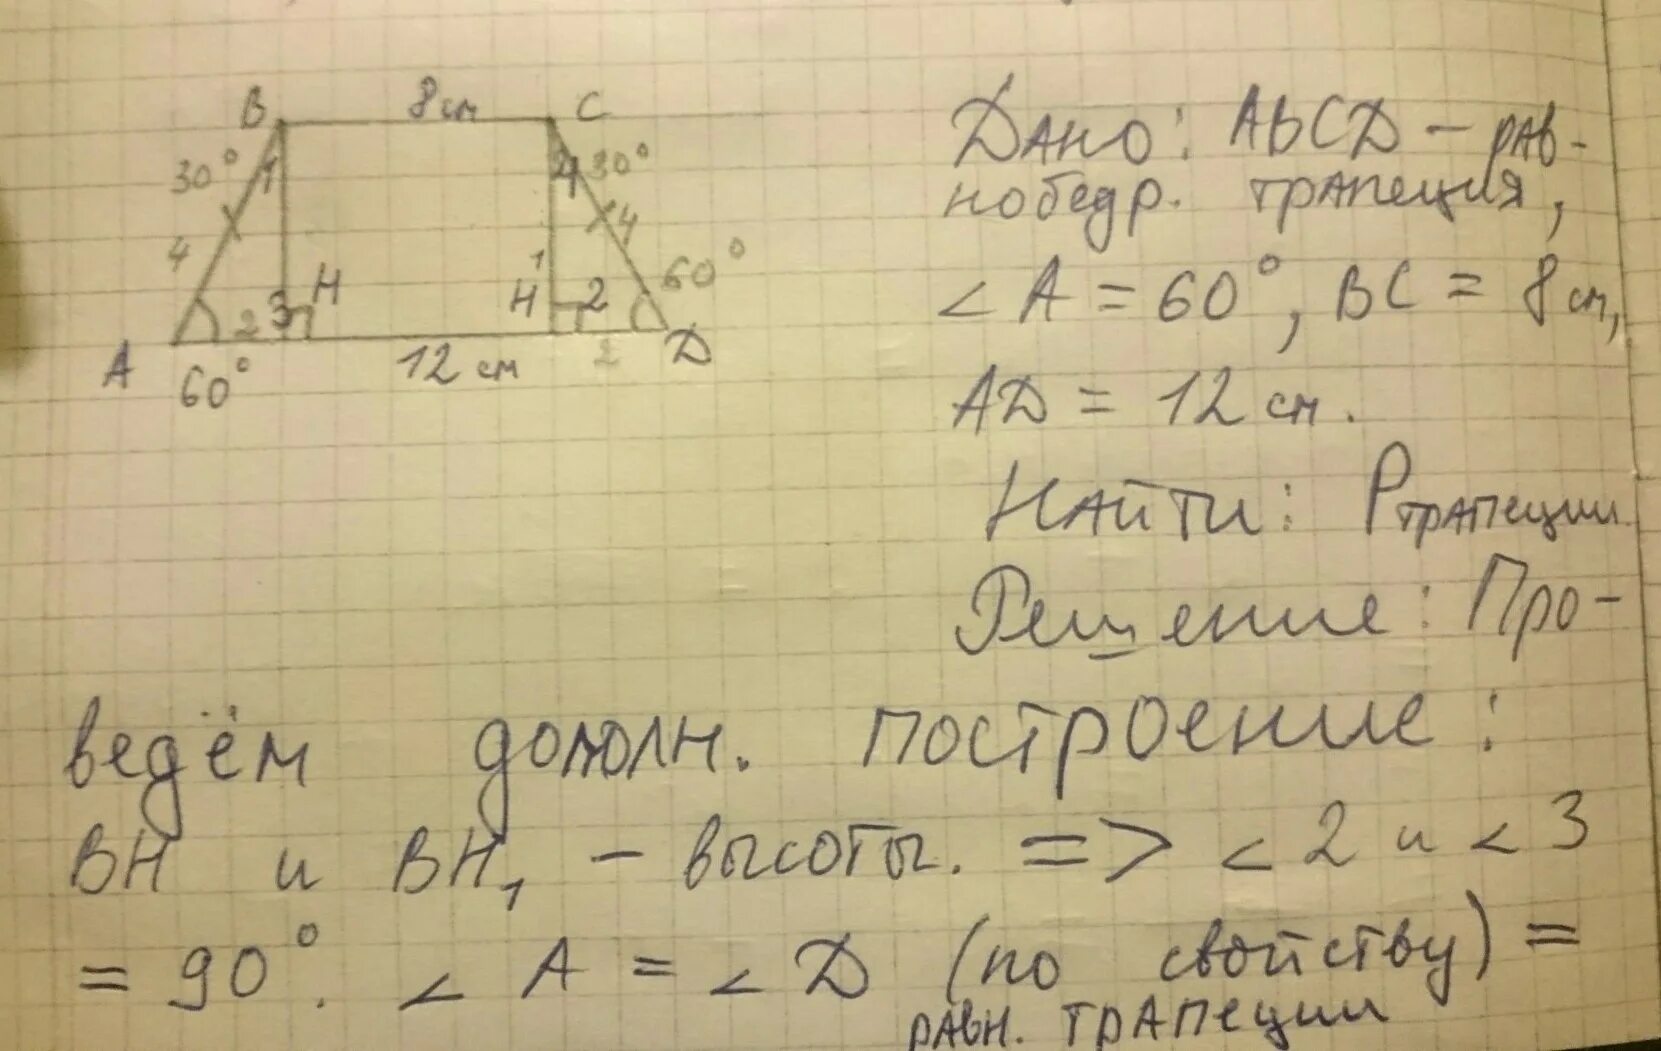 B 8 см C
30° 1 4 30°
4 4
H H 1 2 60°
2 3
A 60° 12 см 2 D
Дано: ABCD – рав-
нобедр. трапеция,
∠A = 60°, BC = 8 см,
AD = 12 см.
Найти: Pтрапеции.
Решение: Про-
ведём дополн. построение:
BH и BH₁ – высоты. => ∠2 и ∠3
= 90°. ∠A = ∠D (по свойству) =
равн. трапеции